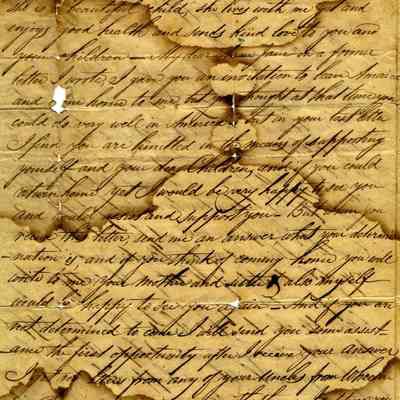 is a beautiful child, she lives with me yet and
enjoys good health and sends kind love to you and
your children — My dear in a former
letter I wrote I gave you an invitation to leave America
and come home to me but I thought at that time you
could do very well in America but in your last letter
I find you are humbled in the means of supporting
yourself and your dear Children, and if you could
return home yet I would be very happy to see you
and would assist and support you — But when you
receive this letter send me an answer what your determi
-nation is and if you think of coming home you will
write to me your mother and sister also myself
would be happy to see you again — And if you are
not determined to come I will send you some assist
ance the first opportunity after I receive your answer
letters from any of your Uncles from Wheeli